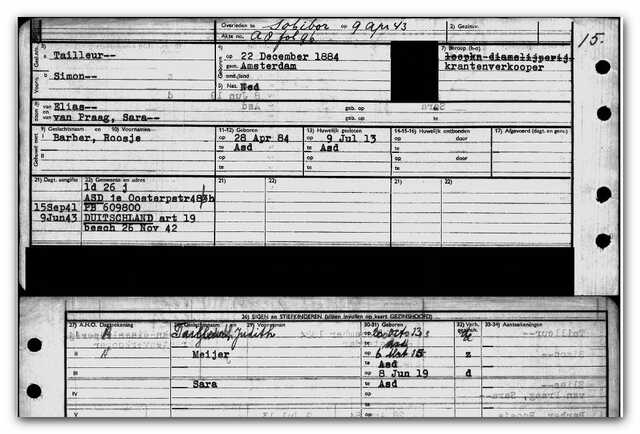 Overleden te Sobibor op 9 Apr 43 2) Gezinsv.
Akte no. AD fol 96 15.
3) Tailleur-- 4) op 22 December 1884 7) Beroep (h-o)
gem. Amsterdam
Simon-- omd./land krantenverkooper
5) Nat. Ned
van Elias-- geb. op te
en van Praag, Sara-- geb. op te
9) Geslachtsnaam en 10) Voornamen 11-12) Geboren 13) Huwelijk gesloten 14-15-16) Huwelijk ontbonden 17) Afgevoerd (dagt. en gem.)
Gehuwd met I Barber, Roosje op 28 Apr 84 op 9 Jul 13 op door
te Asd te Asd te
II op op op door
te te te
21) Dagt. aangifte 22) Gemeente en adres
1d 26 j
ASD 1e Oosterpstr 48 h
15Sep41 PB 609800
9Jun43 DUITSCHLAND art 19
besch 26 Nov 42
26) EIGEN en STIEFKINDEREN (alleen invullen op kaart GEZINSHOOFD)
27) A.H.O. Dagteekening Geslachtsnaam 29) Voornamen 30-31) Geboren 32) Verh. 33-34) Aanteekeningen
Judith 13 d
Asd
II Meijer 15 z
Asd
III 8 Jun 19 d
Sara Asd
IV
V